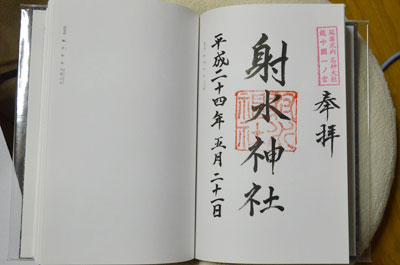 延喜式内名神大社
越中國一ノ宮
奉拝
射水神社
平成二十四年五月二十一日